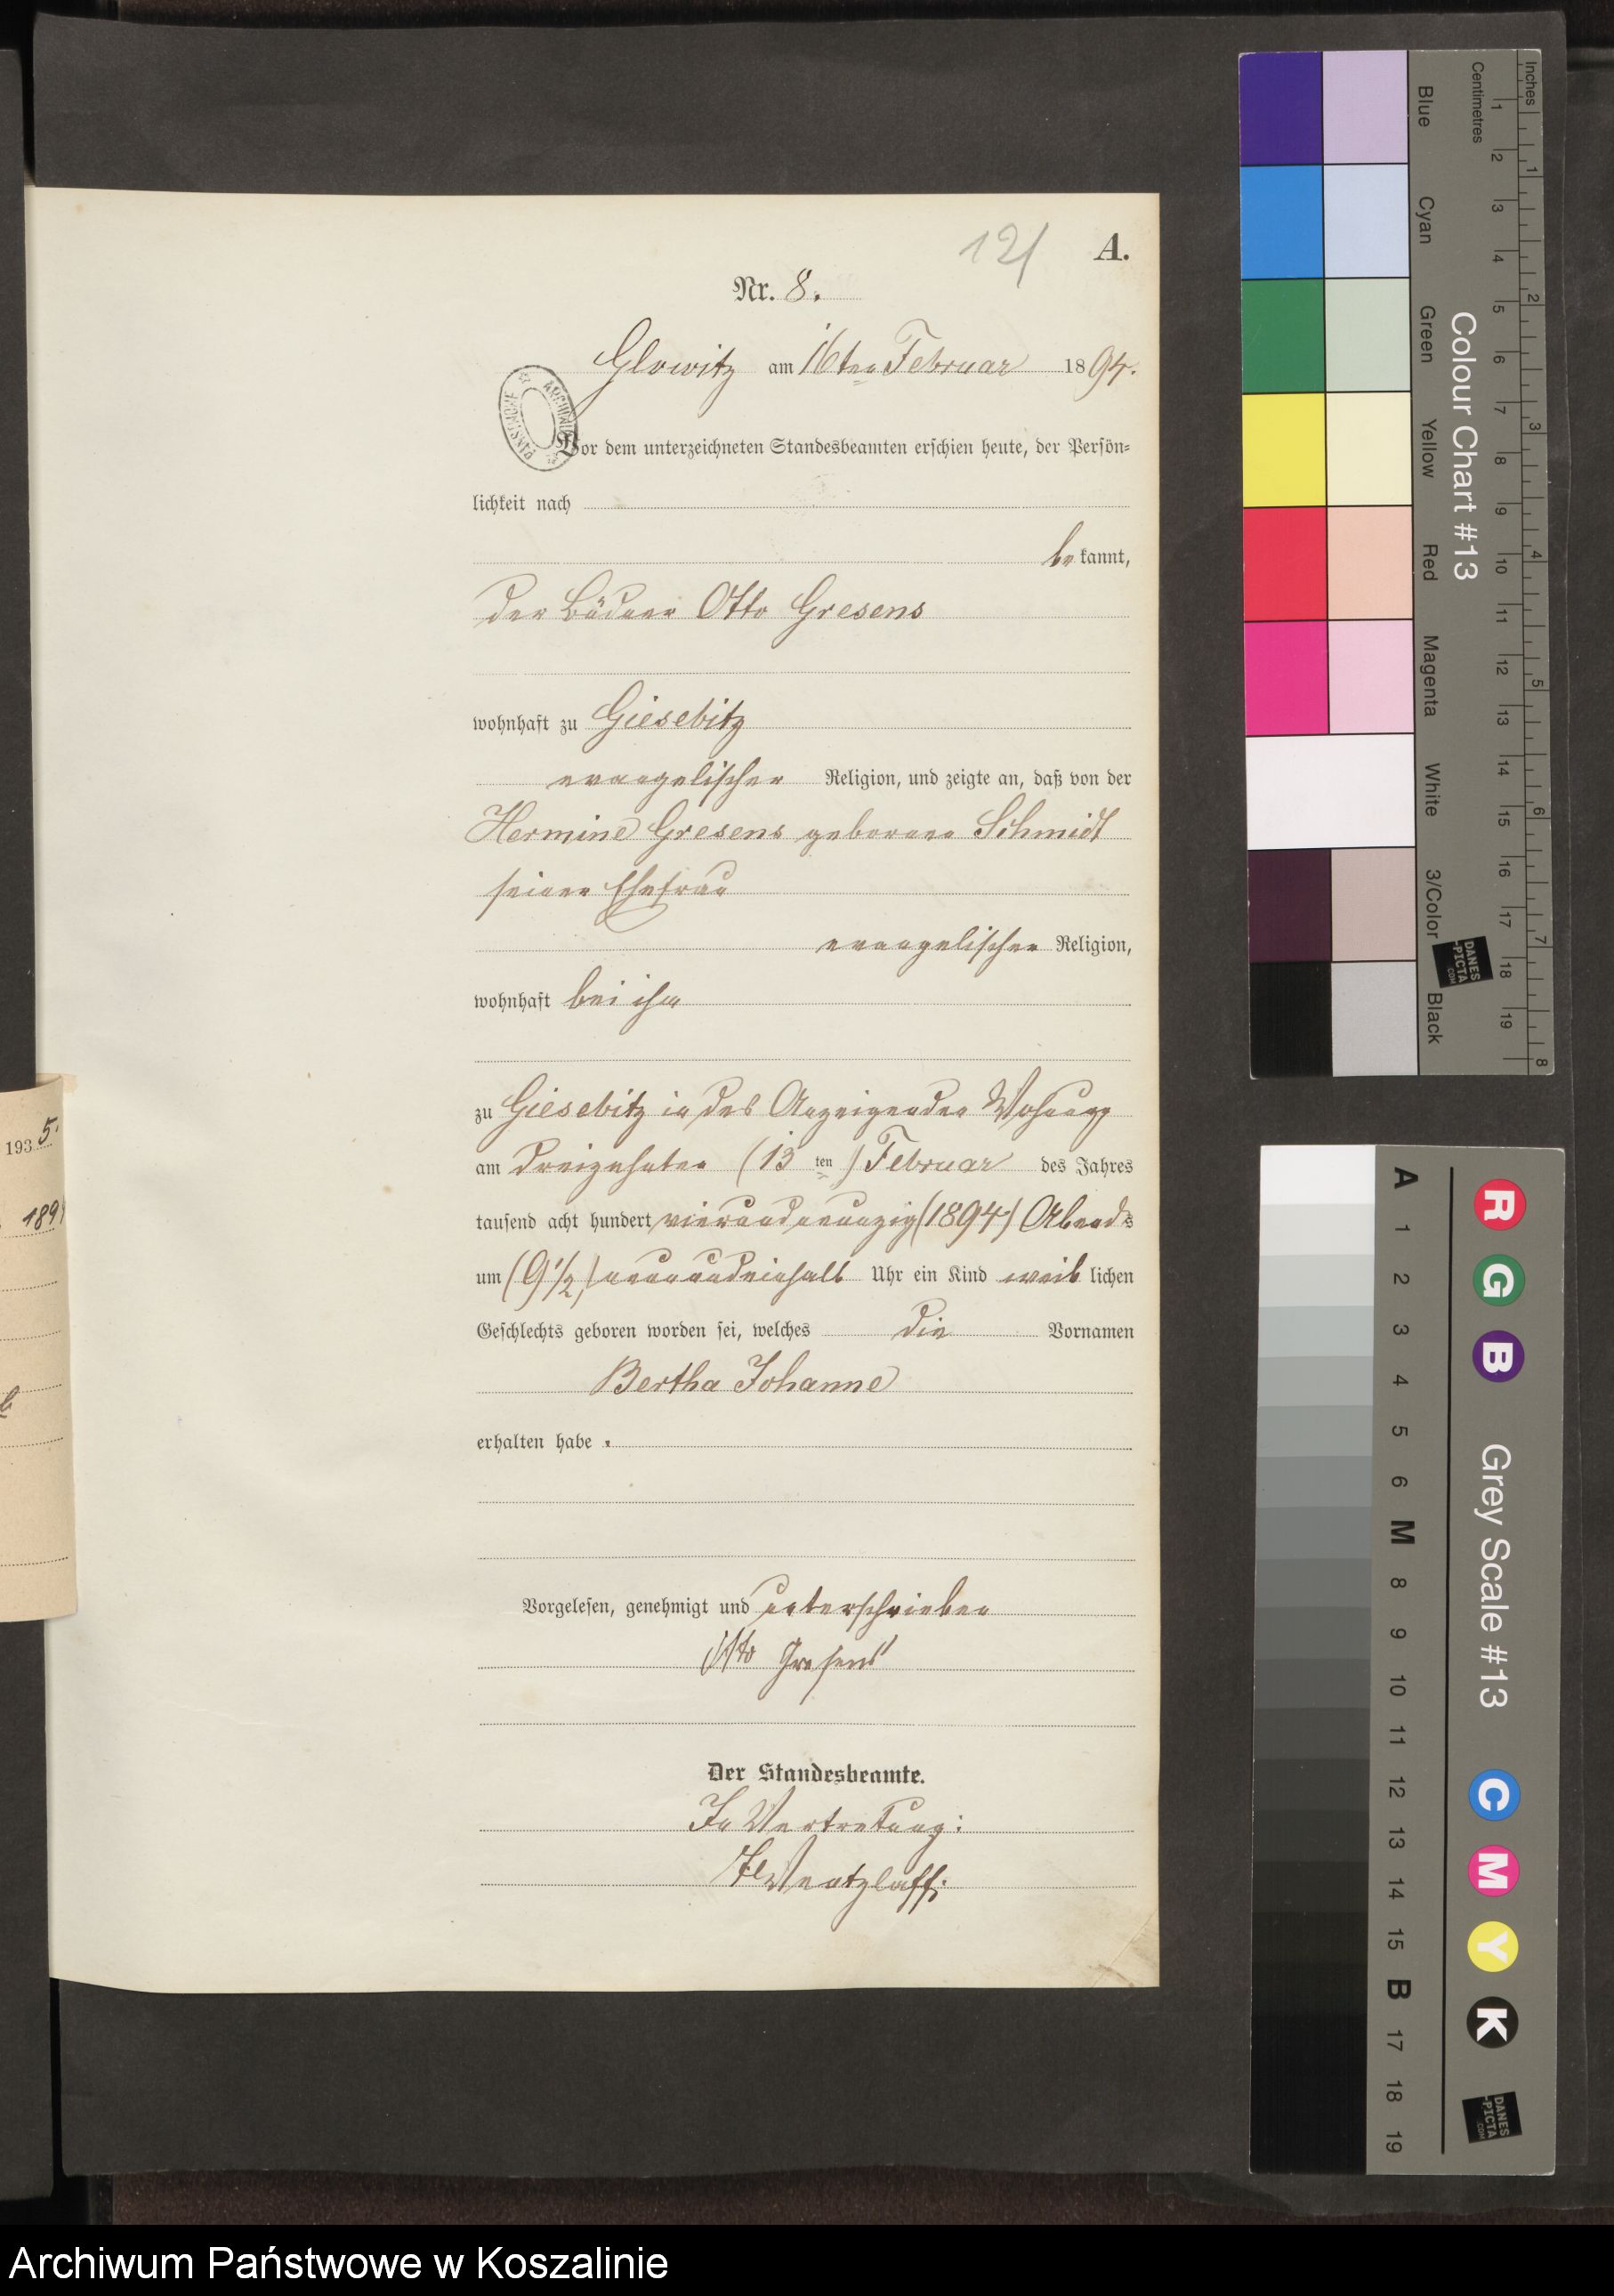 121
A.
Nr. 8.
Glowitz am 16ten Februar 1894.
ARCHIWUM PAŃSTWOWE
Vor dem unterzeichneten Standesbeamten erschien heute, der Persön=
lichkeit nach
be kannt,
der Büdner Otto Gresens
wohnhaft zu Giesebitz
evangelischer Religion, und zeigte an, daß von der
Hermine Gresens geborene Schmidt
seiner Ehefrau
evangelischer Religion,
wohnhaft bei ihm
zu Giesebitz in des Anzeigenden Wohnung
am dreizehnten (13 ten) Februar des Jahres
tausend acht hundert vierundneunzig (1894) Abends
um (9 1/2) neunundeinhalb Uhr ein Kind weib lichen
Geschlechts geboren worden sei, welches die Vornamen
Bertha Johanne
erhalten habe .
Vorgelesen, genehmigt und unterschrieben
Otto Gresens
Der Standesbeamte.
In Vertretung:
Wentzlaff.
193 5.
189
Inches
Centimetres
1 2 3 4 5 6 7 8 9 10 11 12 13 14 15 16 17 18 19
1 2 3 4 5 6 7 8
Colour Chart #13
Blue
Cyan
Green
Yellow
Red
Magenta
White
3/Color
Black
DANES
-PICTA
.COM
A 1 2 3 4 5 6 M 8 9 10 11 12 13 14 15 B 17 18 19
R G B
Grey Scale #13
C M Y K
DANES
-PICTA
.COM
Archiwum Państwowe w Koszalinie